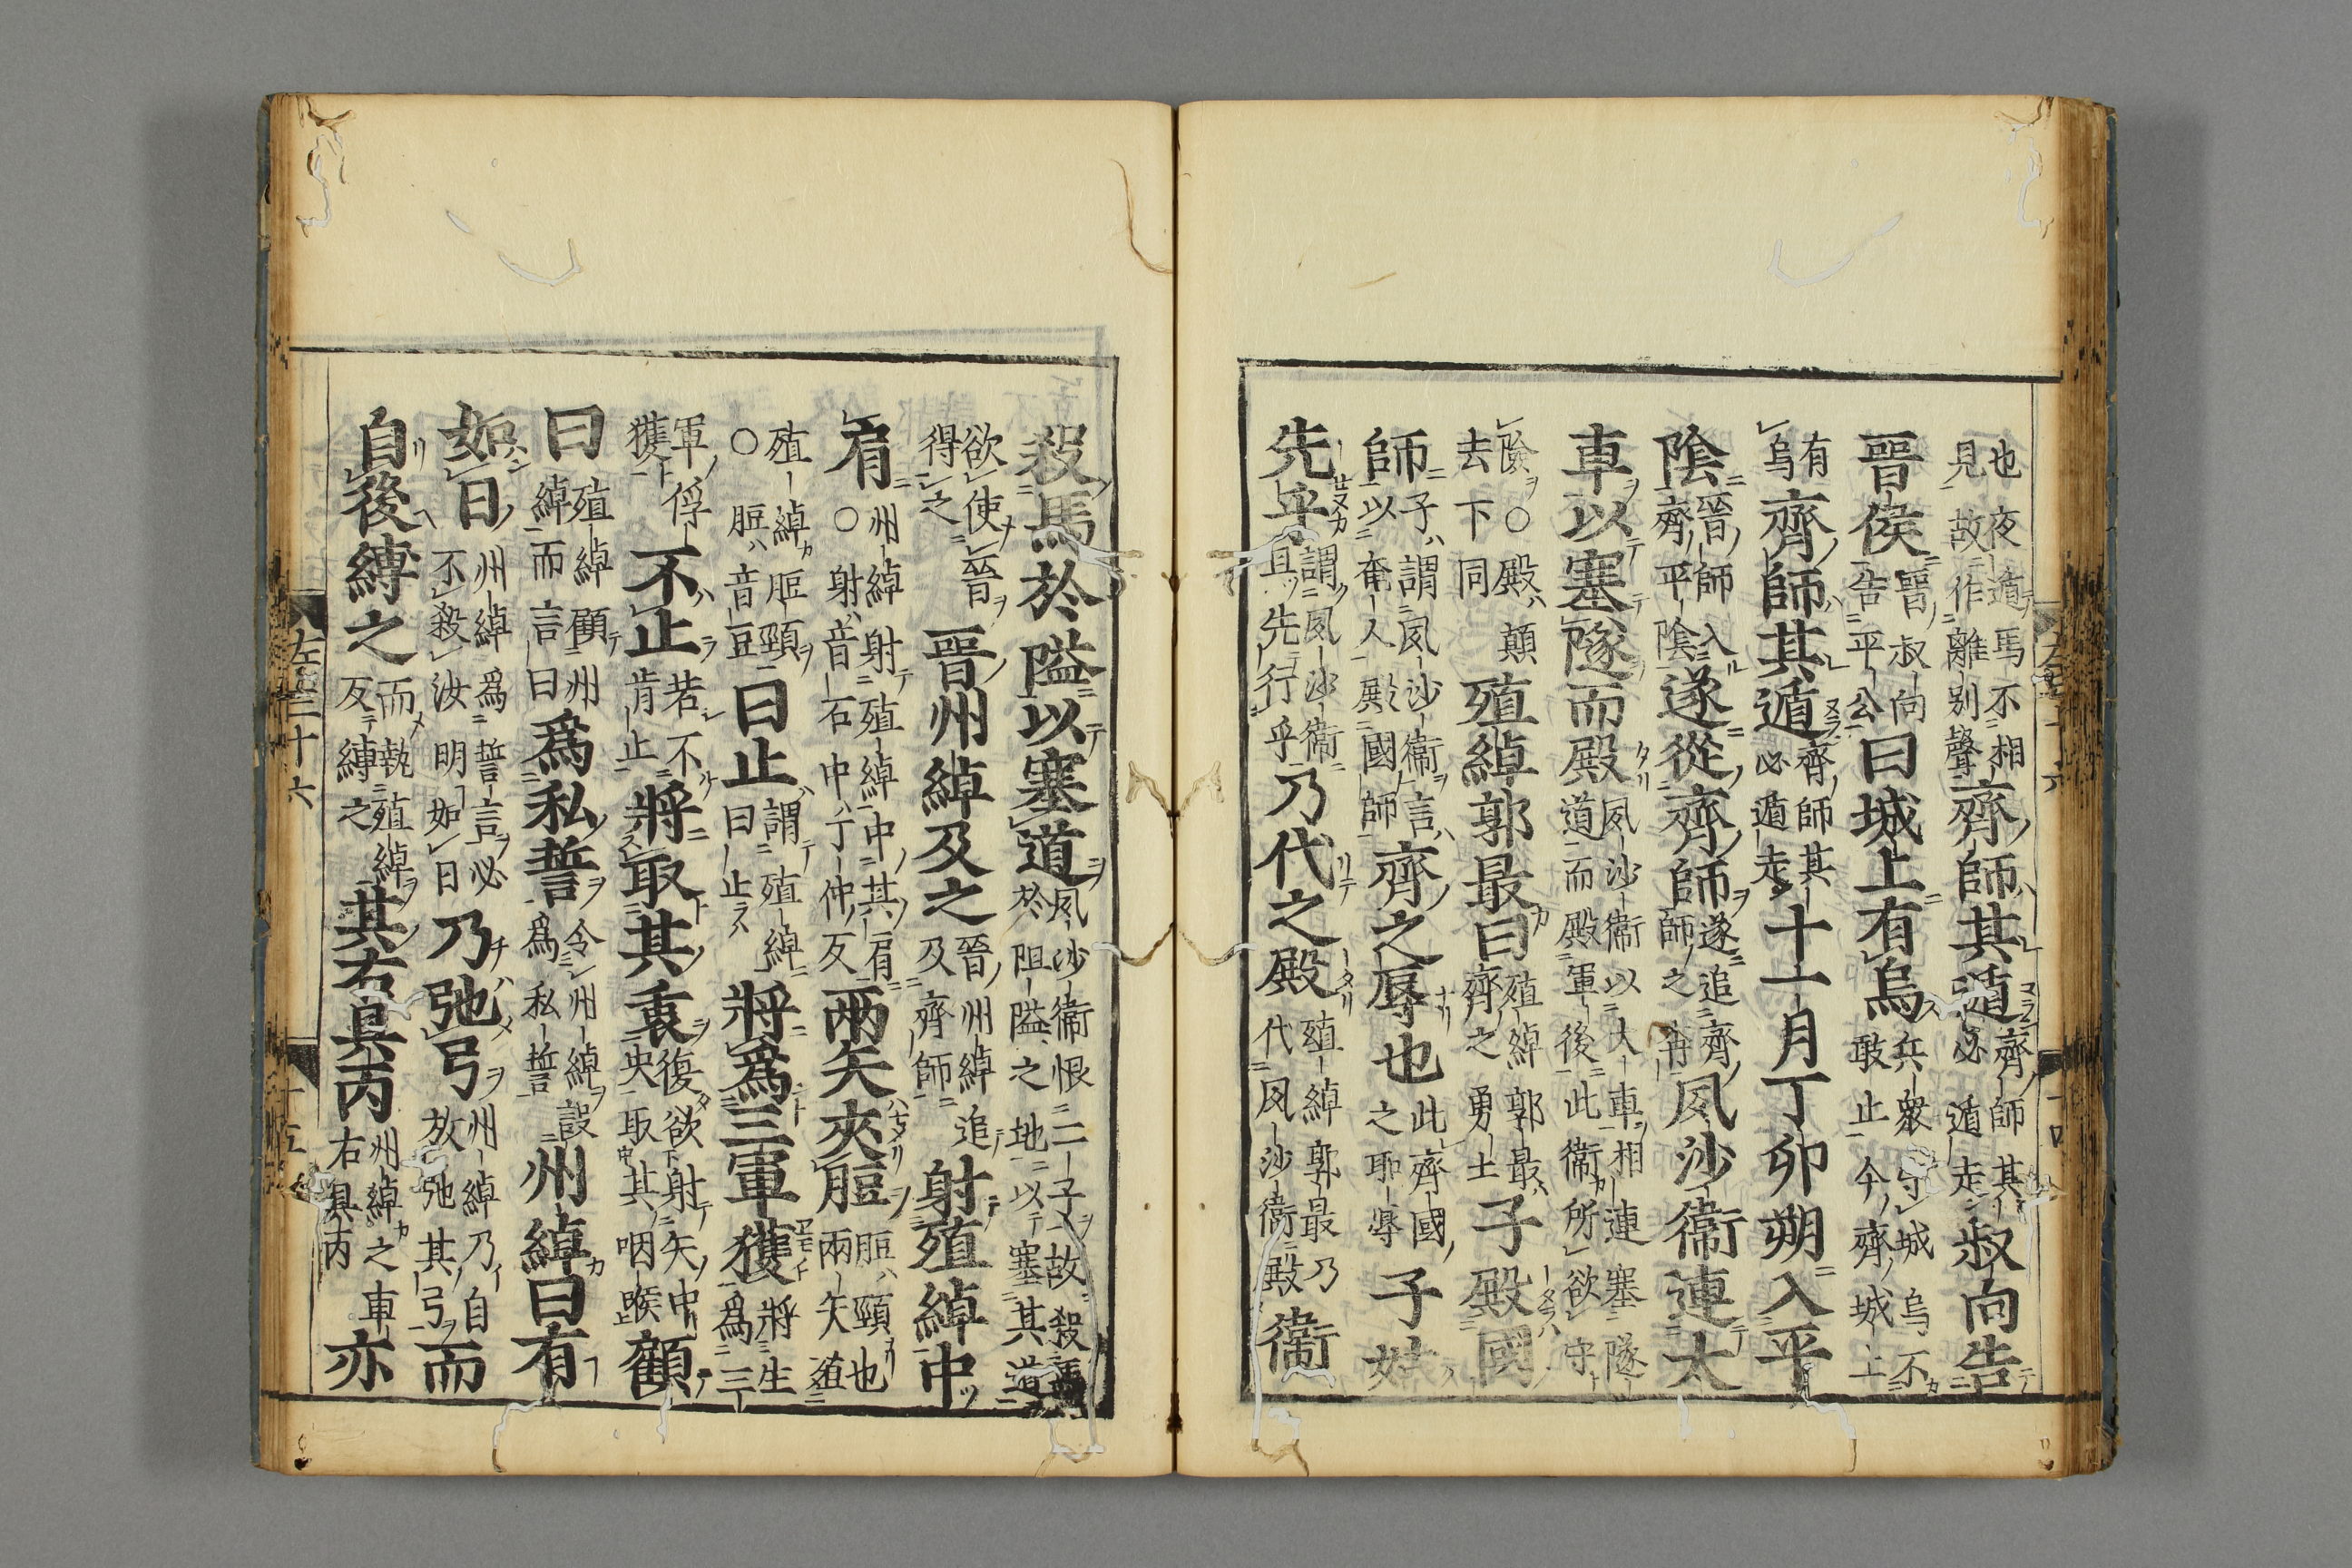 也夜遁馬不相見故作離別聲齊師其遁齊師其必遁走叔向告
晉侯晉叔向告平公曰城上有烏兵衆守城烏不敢止今齊城上
有烏齊師其遁齊師其必遁走十一月丁卯朔入平
陰晉師入齊平陰遂從齊師遂追齊師之奔夙沙衞連大
車以塞隧而殿夙沙衞以大車相連塞隧道而殿軍後此衞所欲守
險○殿顛去下同殖綽郭最曰殖綽郭最齊之勇士子殿國
師子謂夙沙衞言以奄人殿國師齊之辱也此齊國之恥辱子姑
先乎謂夙沙衞且先行乎乃代之殿殖綽郭最乃代夙沙衞殿衞
殺馬於隘以塞道夙沙衞恨二子故殺馬於阻隘之地以塞其道
欲使晉得之晉州綽及之晉州綽追及齊師射殖綽中
肩州綽射殖綽中其肩○射音石中丁仲反兩矢夾脰脰頸也兩矢
殖綽脰頸○脰音豆曰止謂殖綽曰止將爲三軍獲將生爲三
軍俘獲不止若不肯止將取其衷復欲射矢中央取其咽喉顧
曰殖綽顧州綽而言曰爲私誓令州綽設爲私誓州綽曰有
如日州綽爲誓言必不殺汝明如日乃弛弓州綽乃自放弛其弓而
自後縛之而執殖綽反縛之其右具丙州綽之車右具丙亦
左二十六
十五